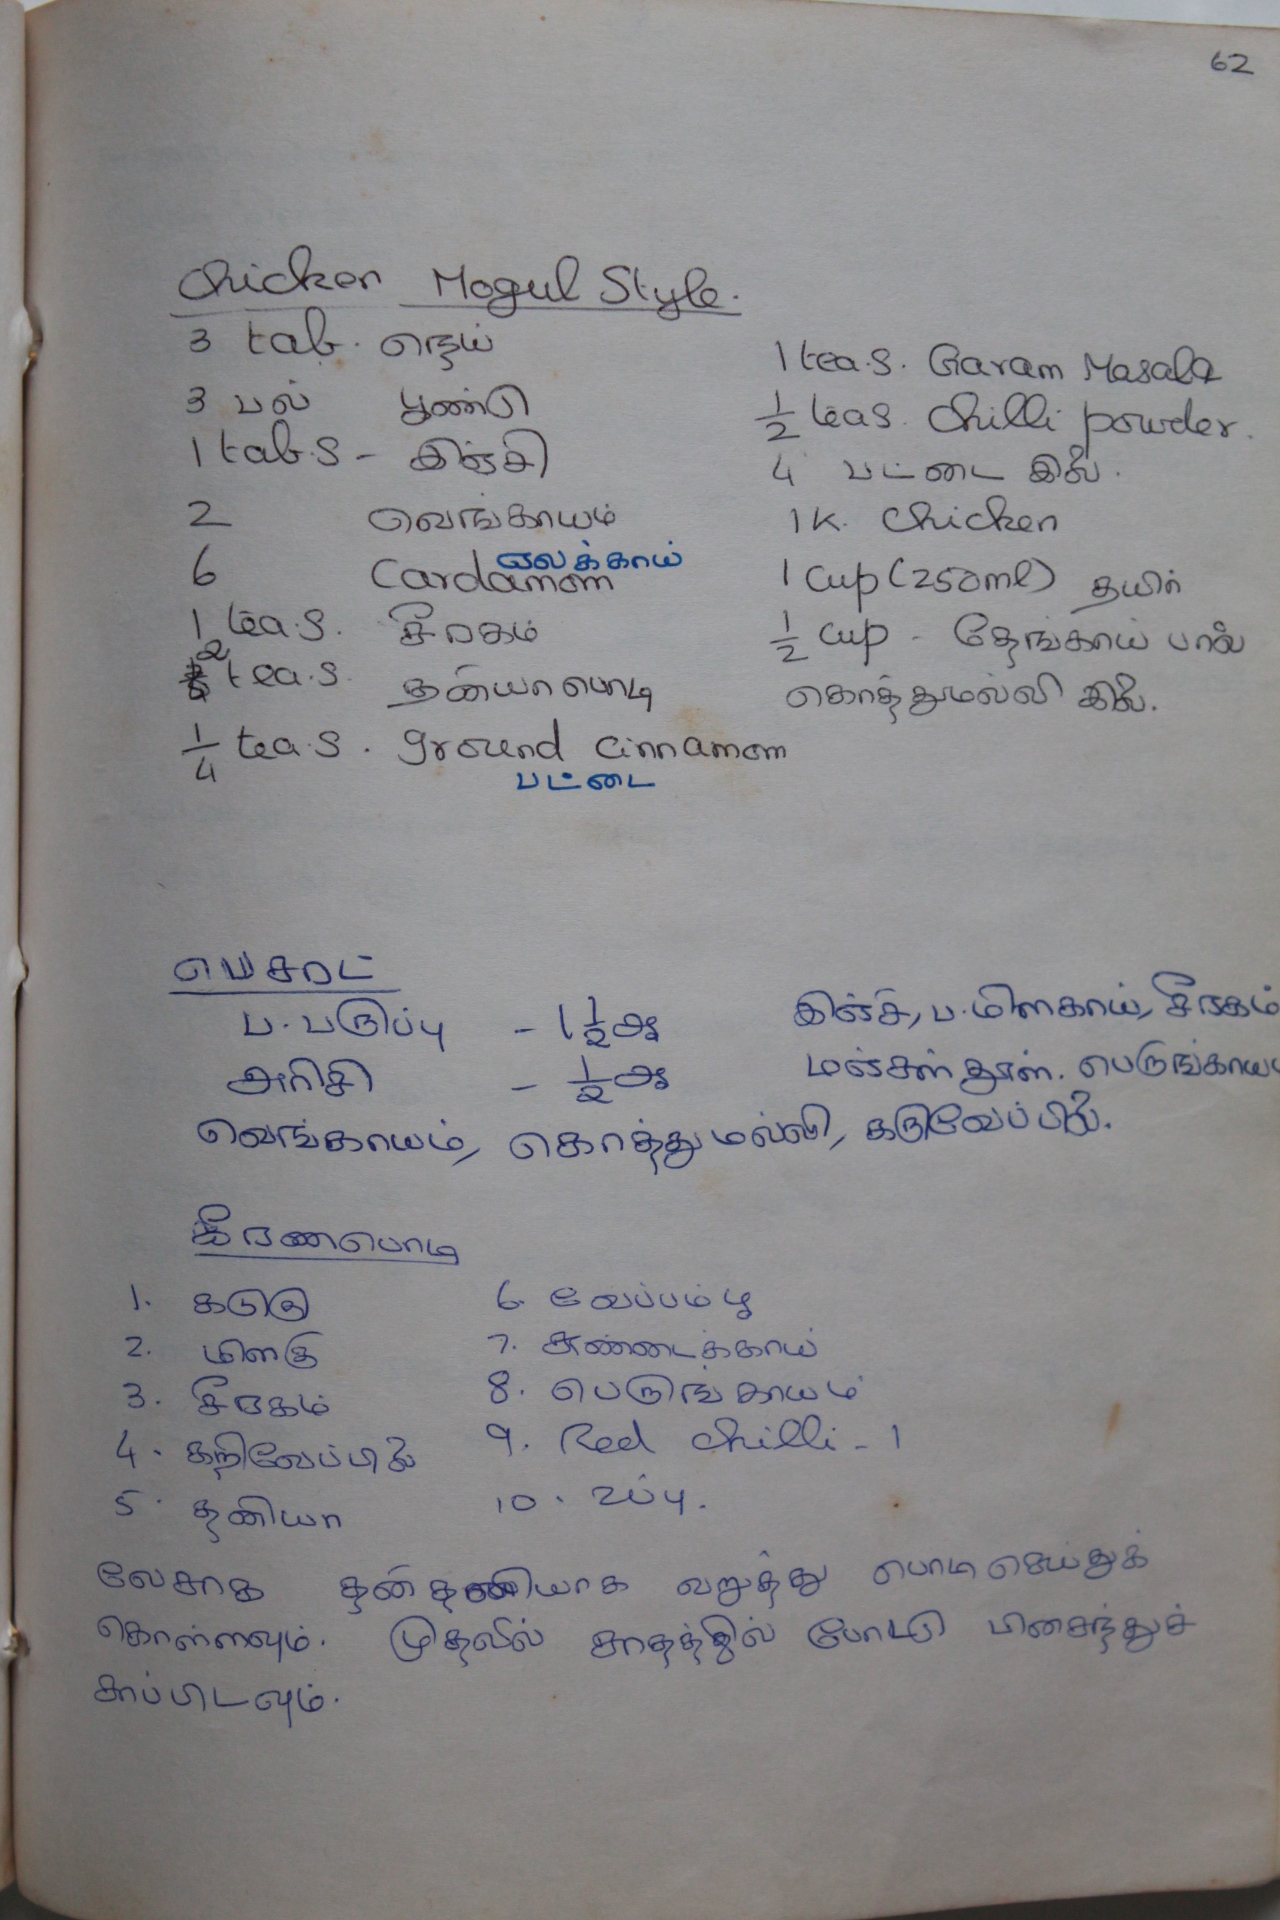 62
Chicken Mogul Style.
3 tab. நெய்
3 பல் பூண்டு
1 tab.s - இஞ்சி
2 வெங்காயம்
ஏலக்காய்
6 Cardamom
1 tea.s. சீரகம்
2 tea.s. தனியா பொடி
1/4 tea.s. ground cinnamom
பட்டை
1 tea.s. Garam Masala
1/2 teas. Chilli powder.
4 பட்டை இலை.
1 K. Chicken
1 Cup (250ml) தயிர்
1/2 cup - தேங்காய் பால்
கொத்துமல்லி இலை.
பெசரட்
ப. பருப்பு - 1 1/2 ஆ
அரிசி - 1/2 ஆ
இஞ்சி, ப.மிளகாய், சீரகம்
மஞ்சள் தூள். பெருங்காயம்
வெங்காயம், கொத்துமல்லி, கருவேப்பிலை.
சீரணபொடி
1. கடுகு
2. மிளகு
3. சீரகம்
4. கறிவேப்பிலை
5. தனியா
6. வேப்பம்பூ
7. சுண்டைக்காய்
8. பெருங்காயம்
9. Red chilli - 1
10. உப்பு.
லேசாக தனித்தனியாக வறுத்து பொடி செய்துக்
கொள்ளவும். முதலில் சாதத்தில் போட்டு பிசைந்துச்
சாப்பிடவும்.